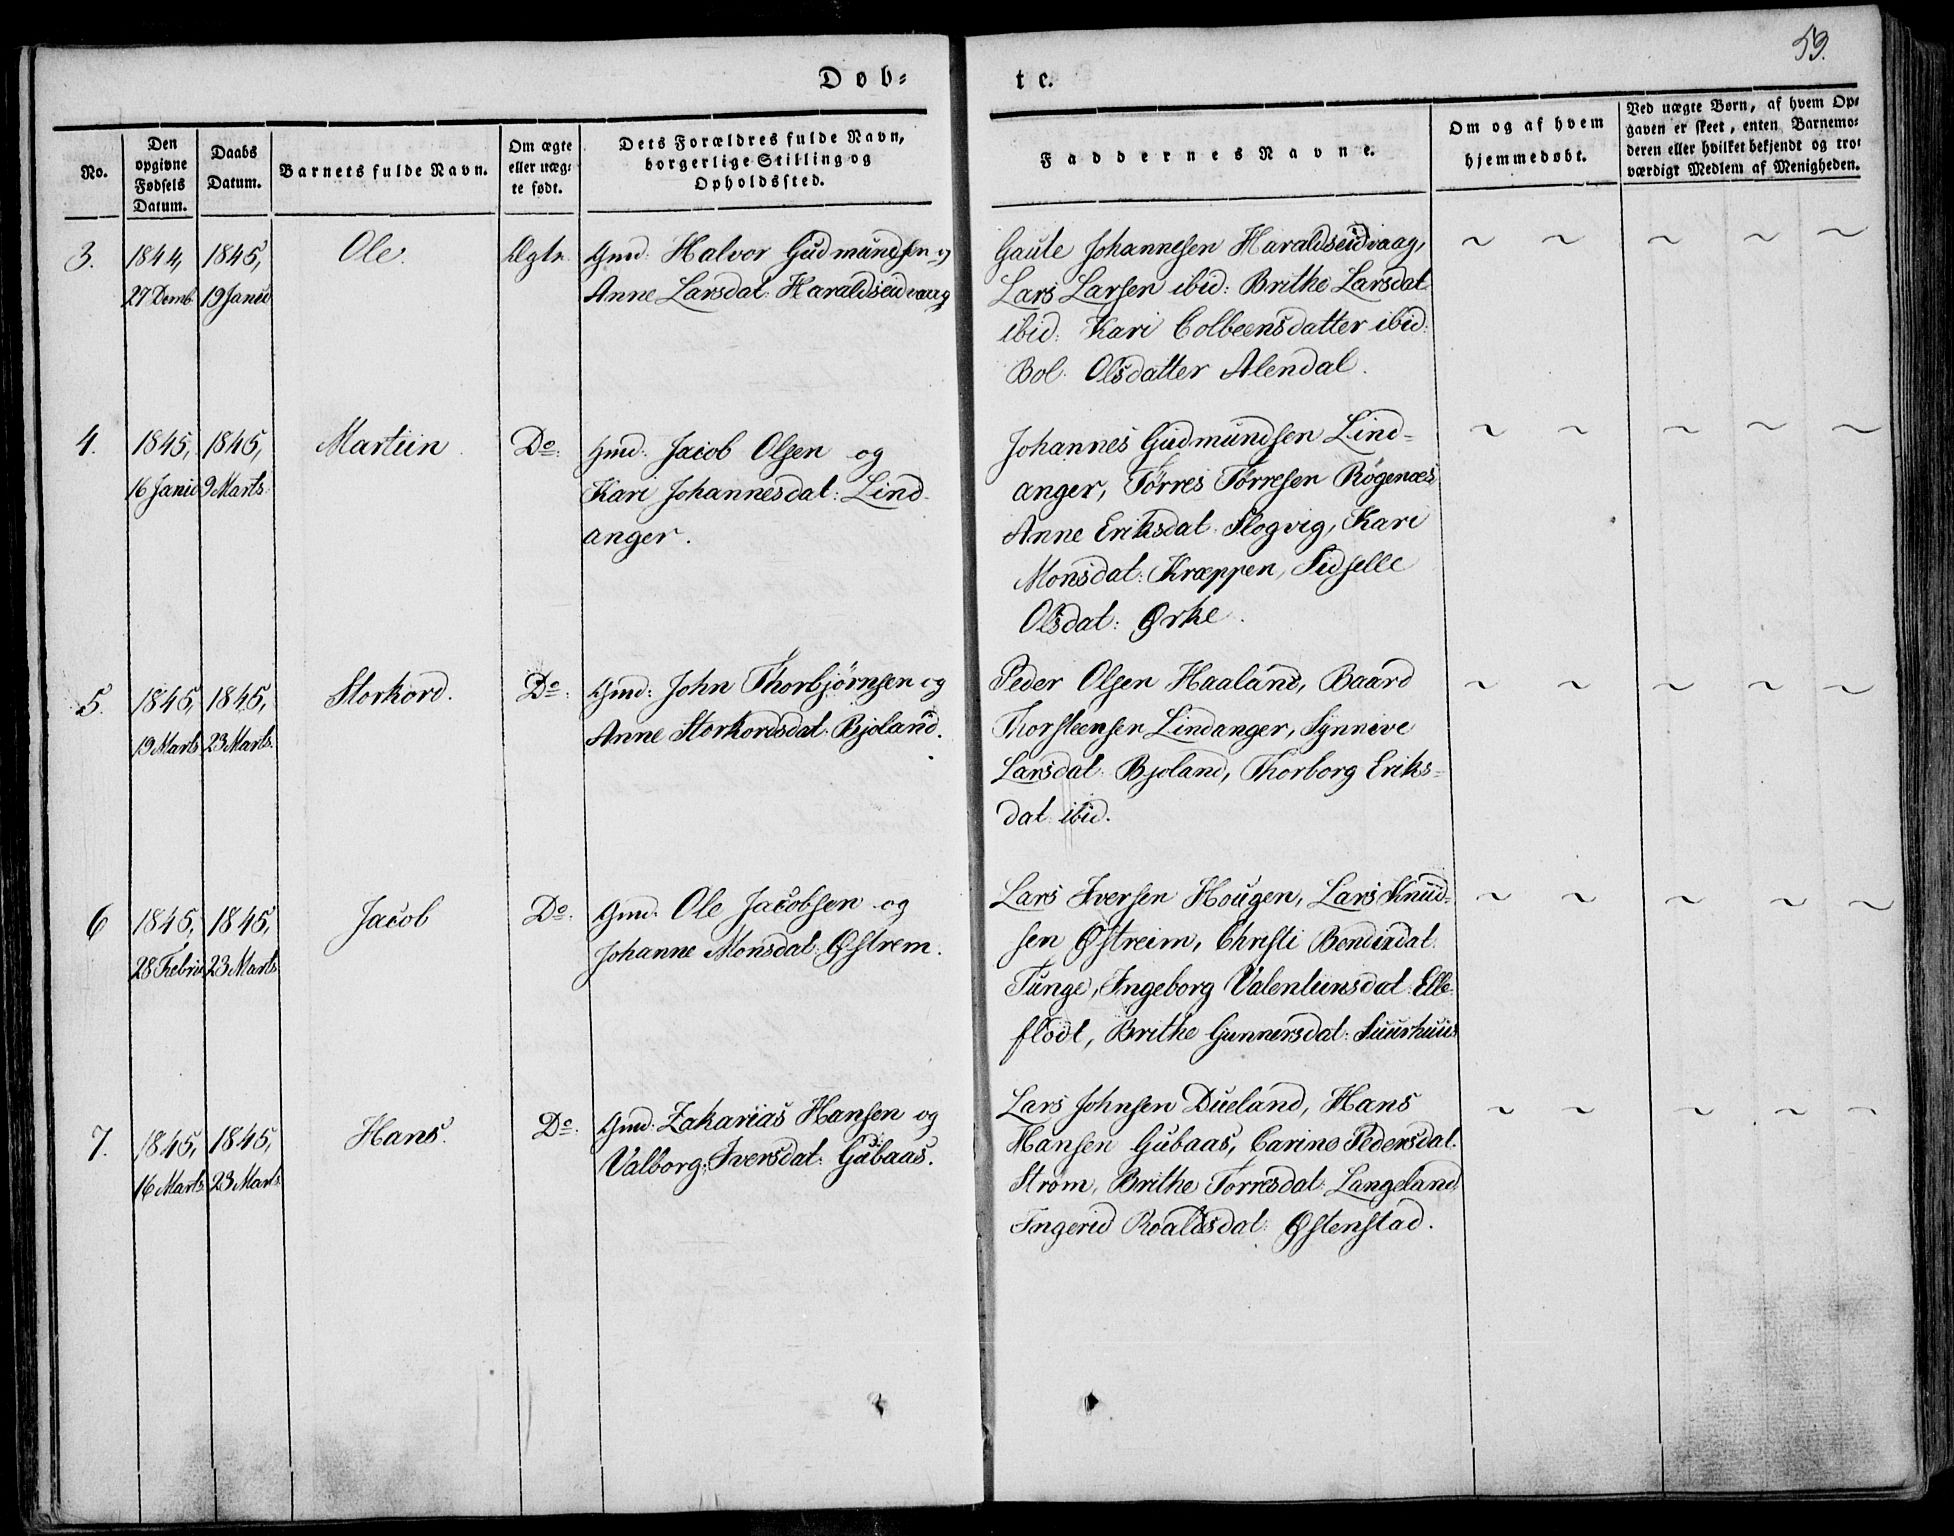 59.
Døb-
te.
No.
Den
opgivne
Fødsels
Datum.
Daabs
Datum.
Barnets fulde Navn.
Om ægte
eller uæg-
te født.
Dets Forældres fulde Navn,
borgerlige Stilling og
Opholdssted.
Faddernes Navne.
Om og af hvem
hjemmedøbt.
Ved uægte Børn, af hvem Op-
gaven er skeet, enten Barnemo-
deren eller hvilket bekjendt og tro-
værdigt Medlem af Menigheden.
3.
1844,
27 Demb
1845,
19 Janu
Ole.
Ægte
Gmd: Halvor Gudmundsen og
Anne Larsdat: Haraldseidvaag
Gaute Johannesen Haraldseidvaag,
Lars Larsen ibid: Brithe Larsdat
ibid: Kari Colbeensdatter ibid:
Bol. Olsdatter Alendal.
~ ~ ~ ~ ~
4.
1845,
16 Janu
1845,
9 Marts.
Martiin
Do:
Gmd: Jacob Olsen og
Kari Johannesdat: Lind-
anger.
Johannes Gudmundsen Lind-
anger, Tørres Tørresen Røgenæs,
Anne Eriksdat: Slogvig, Kari
Monsdat: Kræppen, Sidselle
Olsdat: Ørke.
~ ~ ~ ~ ~
5.
1845,
19 Marts
1845,
23 Marts.
Storkord.
Do:
Gmd: John Thorbjørnsen og
Anne Storkordsdat: Bjoland.
Peder Olsen Haaland, Baard
Thorsteensen Lindanger, Synnive
Larsdat: Bjoland, Thorborg Eriks-
dat: ibid.
~ ~ ~ ~ ~
6
1845,
28 Febru
1845,
23 Marts
Jacob
Do:
Gmd: Ole Jacobsen og
Johanne Monsdat: Østrem.
Lars Iversen Hougen, Lars Knud-
sen Østreim, Christi Bendixdat:
Tunge, Ingeborg Valentinsdat: Elle-
flodt, Brithe Gunnersdat: Suurhuus
~ ~ ~ ~ ~
7.
1845,
16 Marts.
1845,
23 Marts.
Hans.
Do:
Gmd: Zakarias Hansen og
Valborg Iversdat: Gubaas.
Lars Johnsen Dueland, Hans
Hansen Gubaas, Carine Pedersdat:
Strøm, Brithe Torresdat: Langeland,
Ingerid Roaldsdat: Østenstad.
~ ~ ~ ~ ~